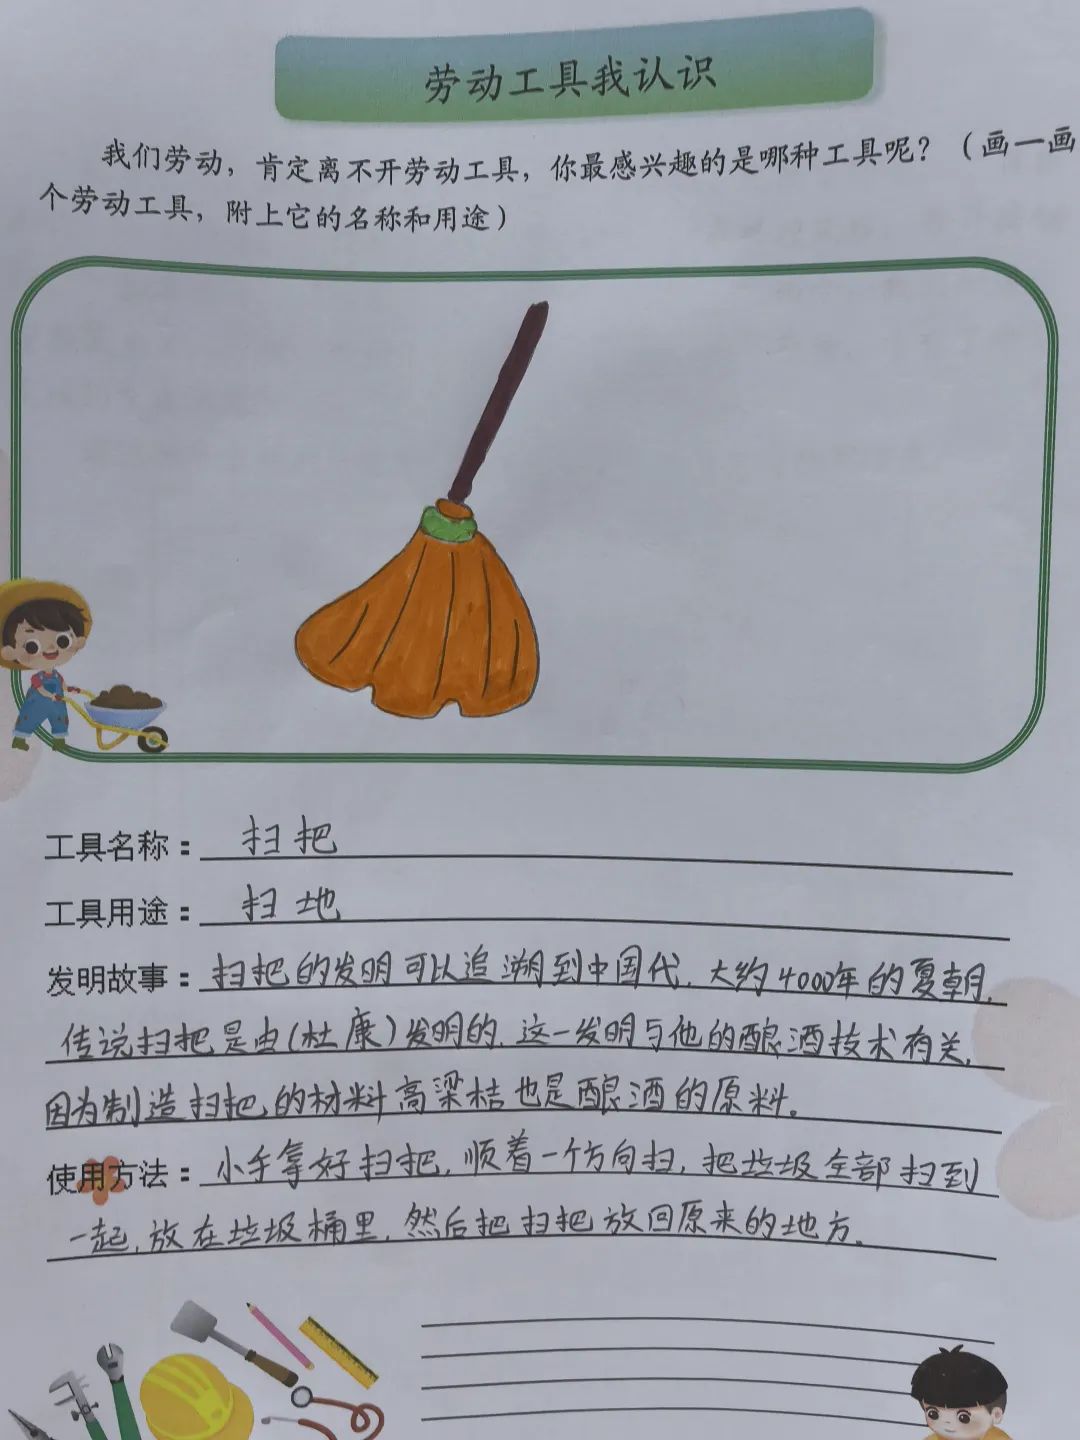 劳动工具我认识
我们劳动，肯定离不开劳动工具，你最感兴趣的是哪种工具呢？（画一画
个劳动工具，附上它的名称和用途）
工具名称：扫把
工具用途：扫地
发明故事：扫把的发明可以追溯到中国代，大约4000年的夏朝，
传说扫把是由(杜康)发明的，这一发明与他的酿酒技术有关，
因为制造扫把的材料高梁桔也是酿酒的原料。
使用方法：小手拿好扫把，顺着一个方向扫，把垃圾全部扫到
一起，放在垃圾桶里，然后把扫把放回原来的地方。